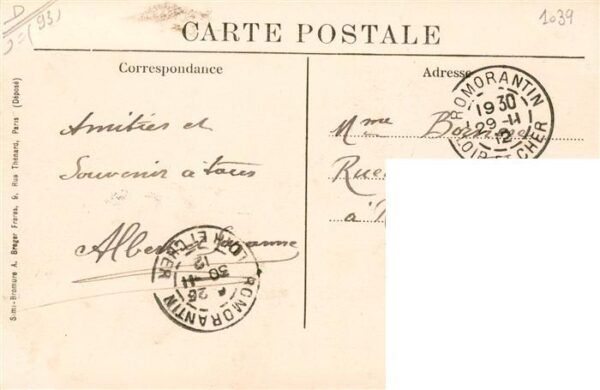 D
(93)
1039
CARTE POSTALE
Correspondance
Adresse
ROMORANTIN
19 30
29-11
12
LOIR-ET-CHER
Amitiés et
Souvenir à tous
Mme
Rue
à
LOIR ET CHER
12
30-11
ROMORANTIN
Simi-Bromure A. Breger Frères, 9, Rue Thénard, Paris (Déposé)